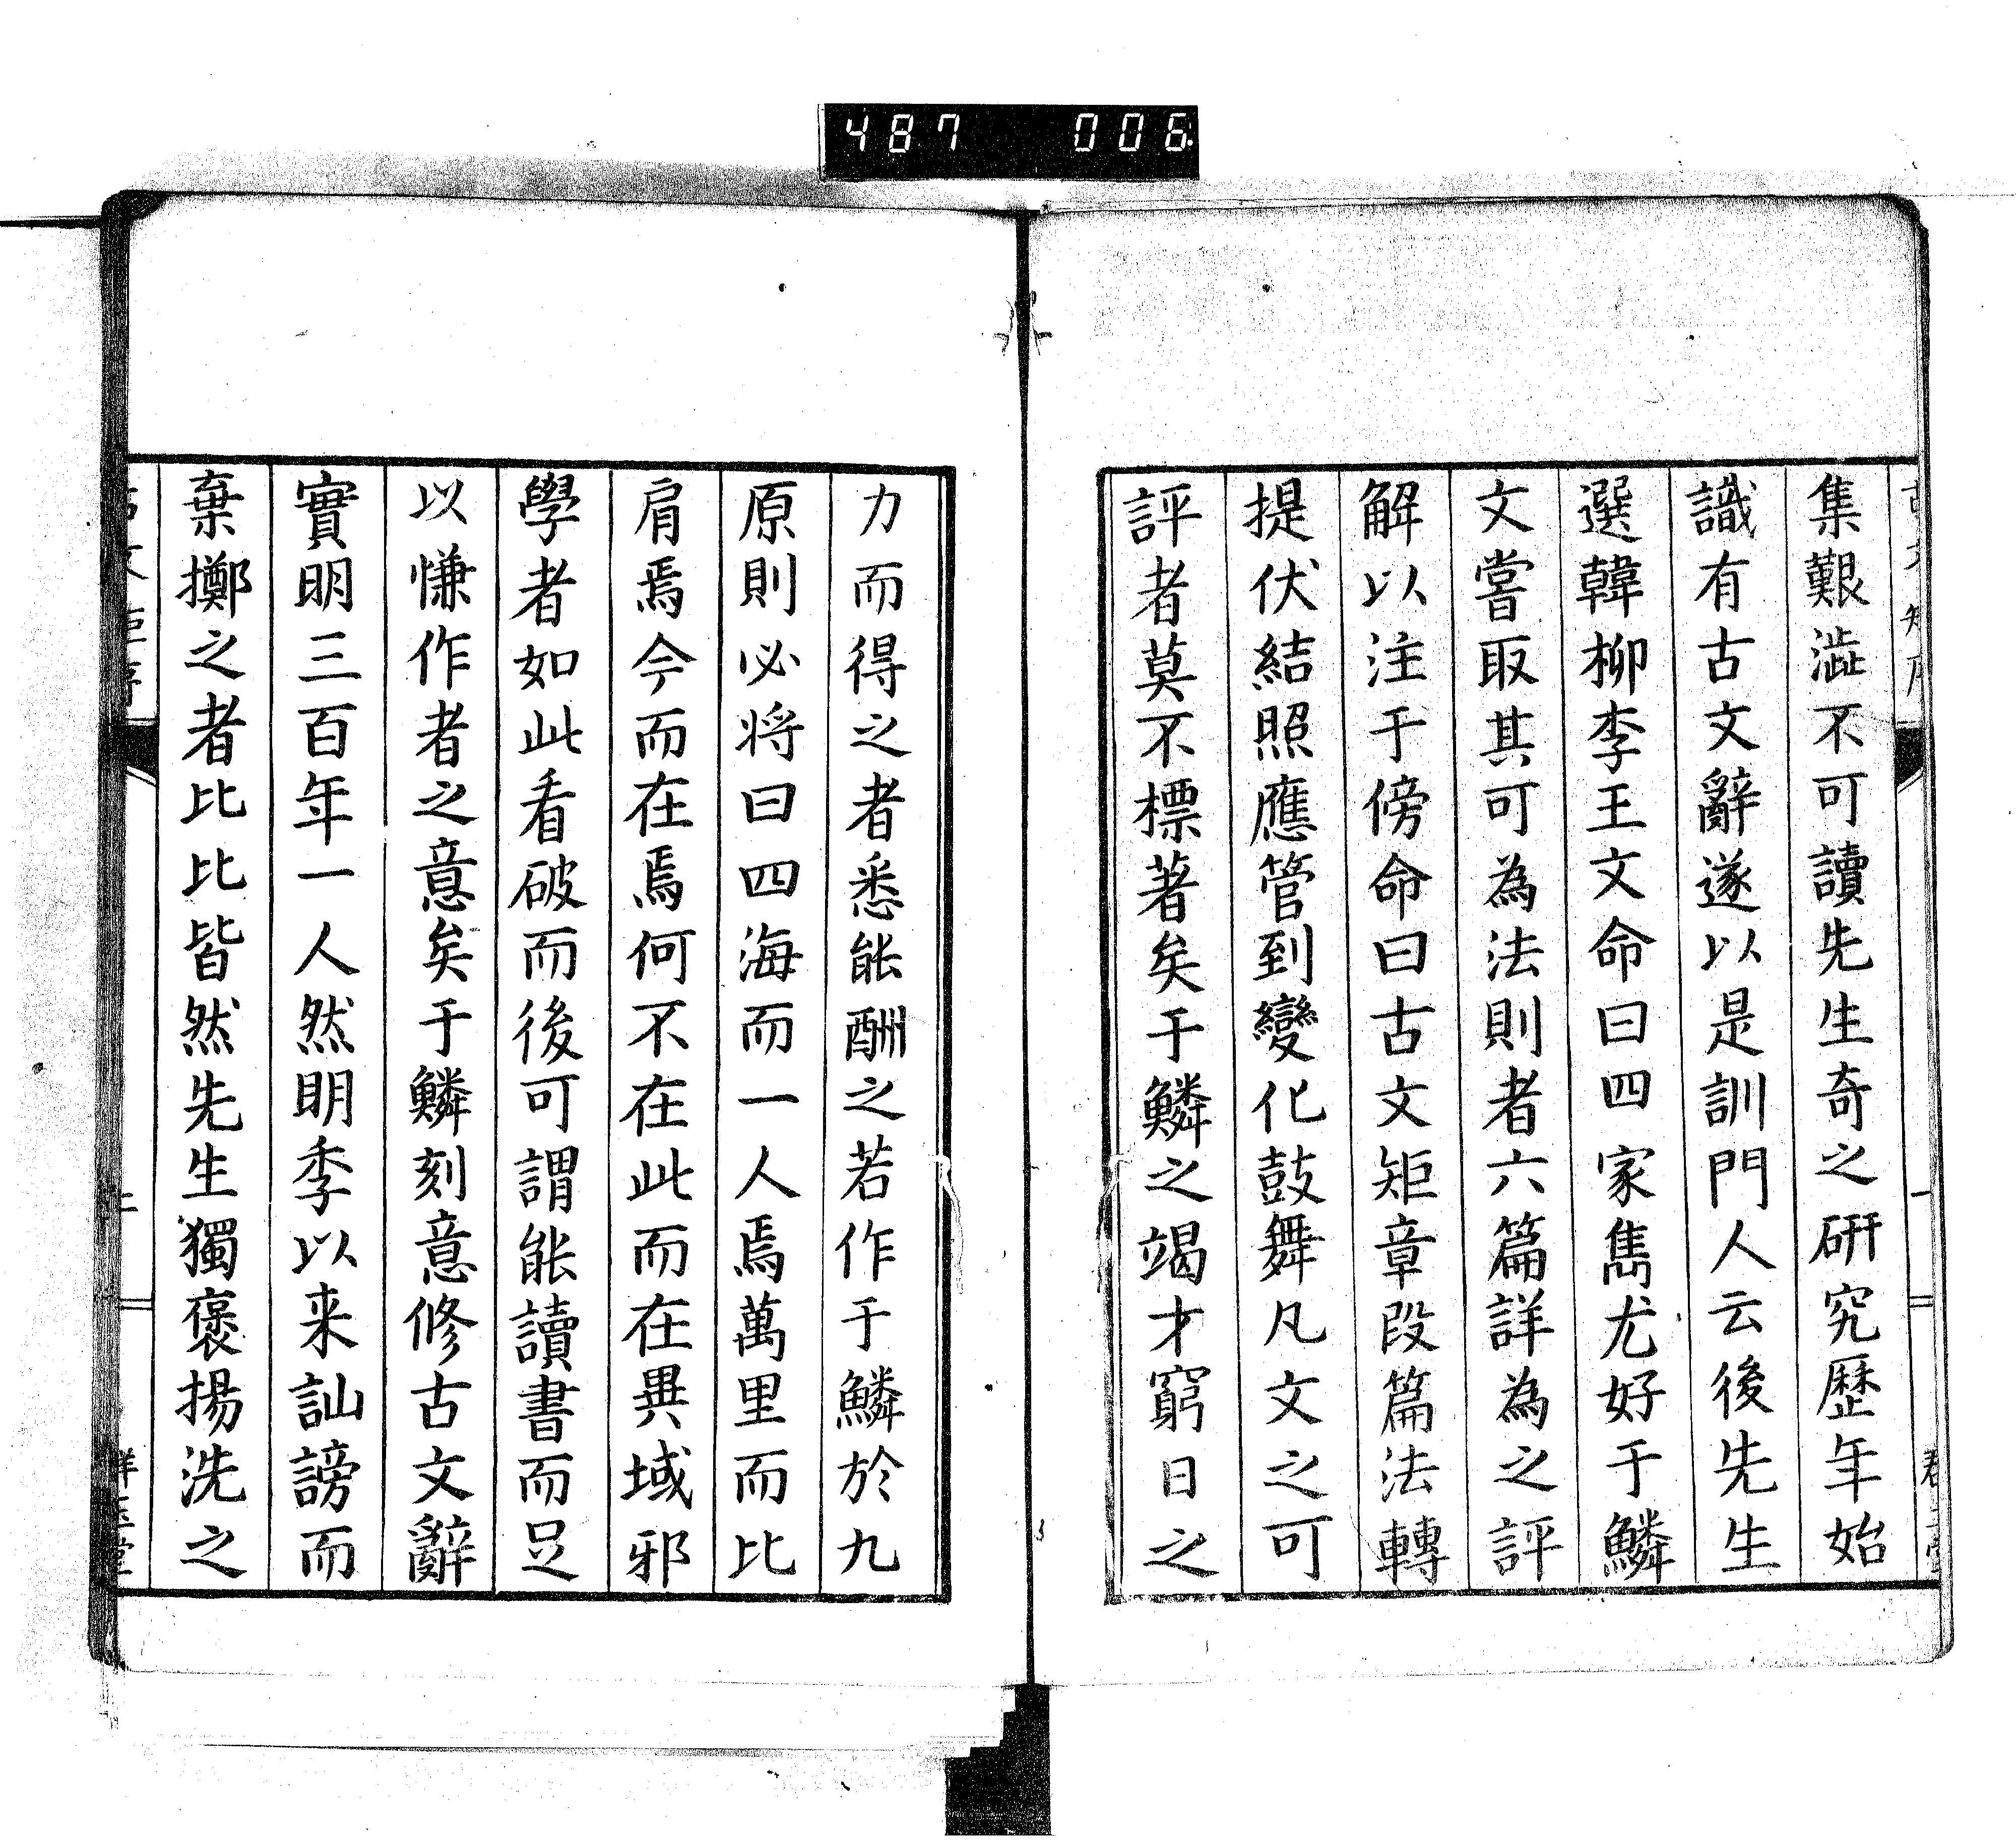 487 006
集艱澁不可讀先生奇之研究歴年始
識有古文辭遂以是訓門人云後先生
選韓柳李王文命曰四家雋尤好于鱗
文嘗取其可為法則者六篇詳為之評
解以注于傍命曰古文矩章段篇法轉
提伏結照應管到變化鼓舞凡文之可
評者莫不標著矣于鱗之竭才窮日之
力而得之者悉能酬之若作于鱗於九
原則必將曰四海而一人焉萬里而比
肩焉今而在焉何不在此而在異域邪
學者如此看破而後可謂能讀書而足
以慊作者之意矣于鱗刻意修古文辭
實明三百年一人然明季以来訕謗而
棄擲之者比比皆然先生獨褒揚洗之